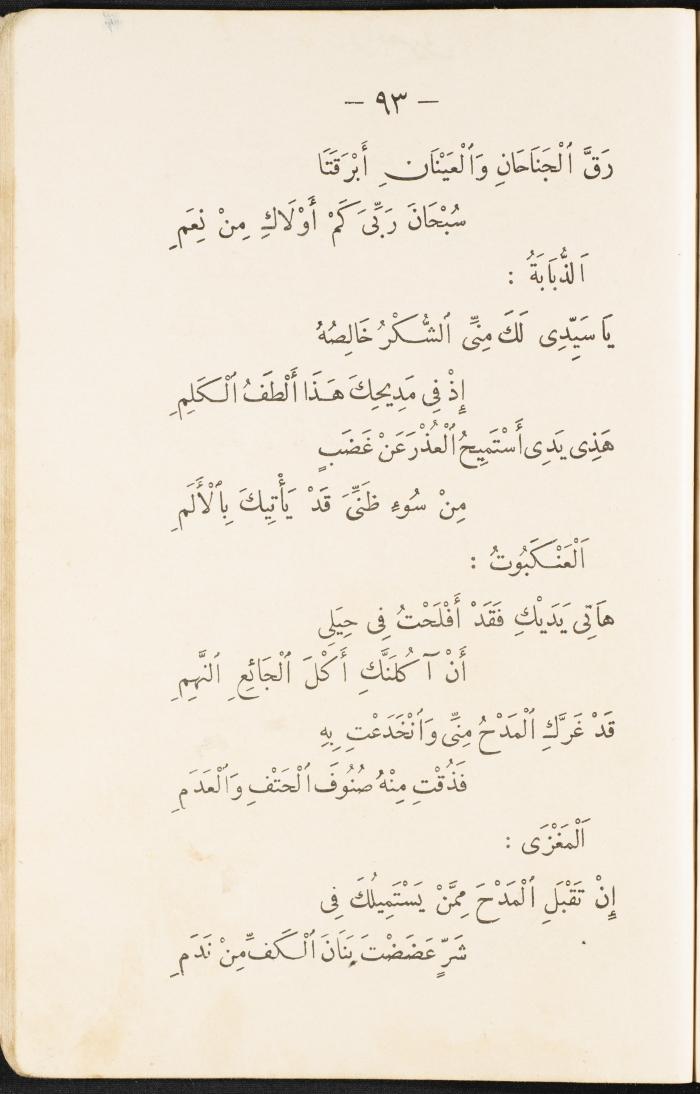 — ٩٣ —
رَقَّ ٱلْجَنَاحَانِ وَٱلْعَيْنَانِ أَبْرَقَتَا
سُبْحَانَ رَبِّىَ كَمْ أَوْلَاكِ مِنْ نِعَمِ
اَلذُّبَابَةُ :
يَا سَيِّدِى لَكَ مِنِّى ٱلشُّكْرُ خَالِصُهُ
إِذْ فِى مَدِيحِكَ هَذَا أَلْطَفُ ٱلْكَلِمِ
هَذِى يَدِى أَسْتَمِيحُ ٱلْعُذْرَ عَنْ غَضَبٍ
مِنْ سُوءِ ظَنِّىَ قَدْ يَأْتِيكَ بِٱلْأَلَمِ
اَلْعَنْكَبُوتُ :
هَاتِى يَدَيْكِ فَقَدْ أَفْلَحْتُ فِى حِيَلِى
أَنْ آكُلَنَّكِ أَكْلَ ٱلْجَائِعِ ٱلنَّهِمِ
قَدْ غَرَّكِ ٱلْمَدْحُ مِنِّى وَٱنْخَدَعْتِ بِهِ
فَذُقْتِ مِنْهُ صُنُوفَ ٱلْحَتْفِ وَٱلْعَدَمِ
اَلْمَغْزَى :
إِنْ تَقْبَلِ ٱلْمَدْحَ مِمَّنْ يَسْتَمِيلُكَ فِى
شَرٍّ عَضَضْتَ بَنَانَ ٱلْكَفِّ مِنْ نَدَمِ